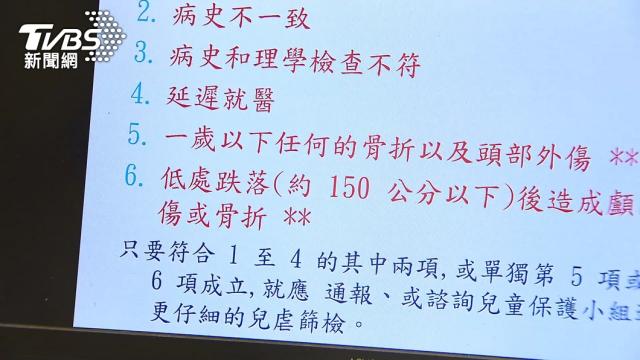 TVBS
新聞網
2. 病史不一致
3. 病史和理學檢查不符
4. 延遲就醫
5. 一歲以下任何的骨折以及頭部外傷 **
6. 低處跌落(約 150 公分以下)後造成顱
傷或骨折 **
只要符合 1 至 4 的其中兩項,或單獨第 5 項或
6 項成立,就應 通報、或諮詢兒童保護小組
更仔細的兒虐篩檢。